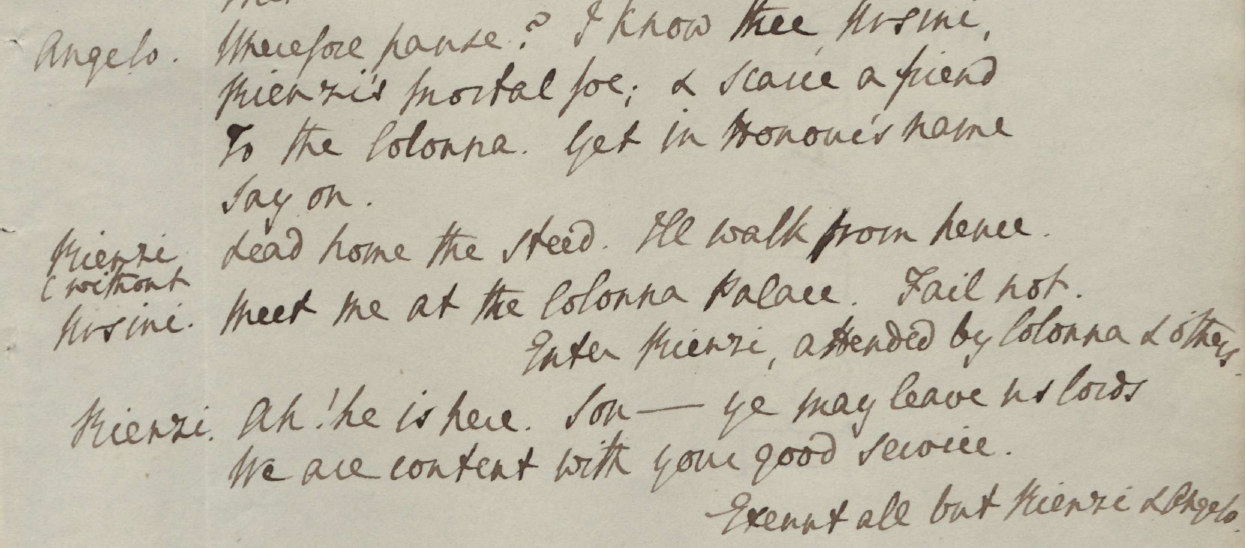 Angelo. Wherefore pause? I know thee, Ursini,
Rienzi's mortal foe; & scarce a friend
To the Colonna. Yet in Honour's name
Say on.
Rienzi Lead home the steed. I'll walk from hence.
(without
Ursini. Meet me at the Colonna Palace. Fail not.
Enter Rienzi, attended by Colonna & others.
Rienzi. Ah! he is here. Son — ye may leave us lords
We are content with your good service.
Exeunt all but Rienzi & Angelo.